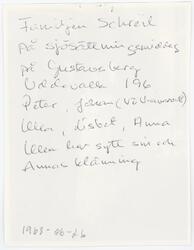 Familjen Schreil
På sjösättningsmiddag
på Gustavsberg
Uddevalla 196
Peter, Johan
Ellen, Lisbet, Anna
Ellen har sytt sin och
Annas klänning
1968-06-26